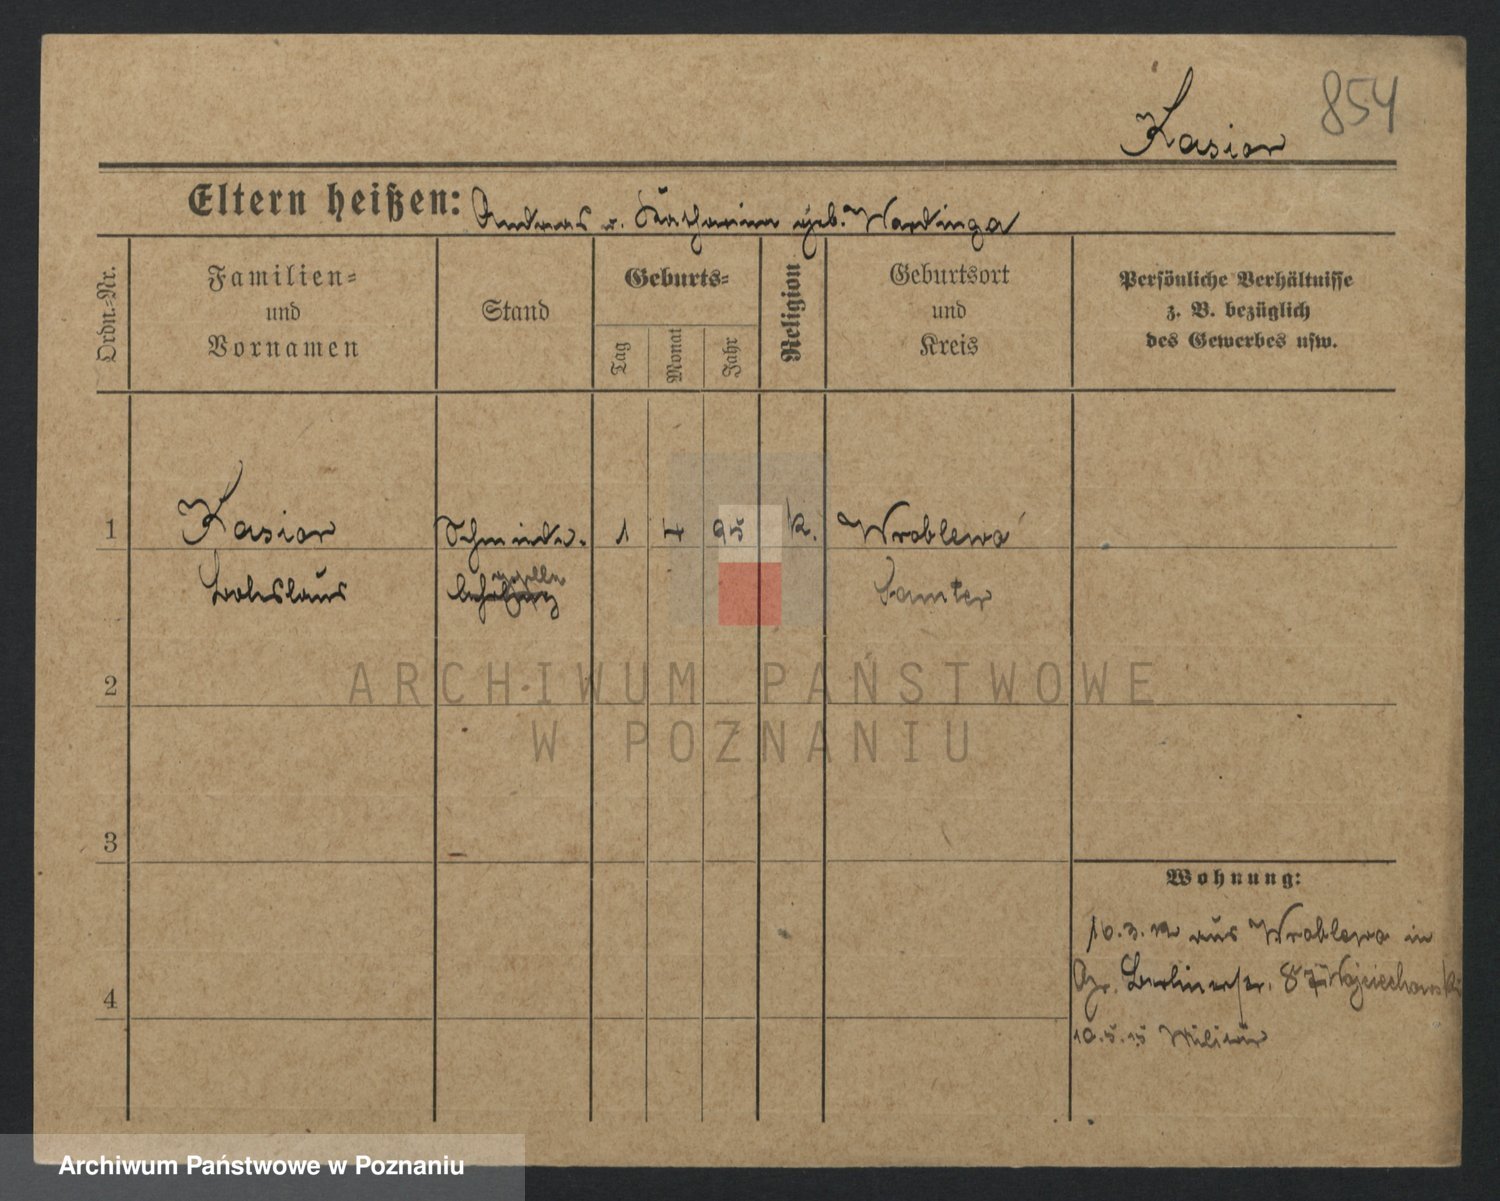 854
Kasior
Eltern heißen: Andreas u. Katharina geb. Wardinga
Ordn.-Nr.
Familien-
und
Vornamen
Stand
Geburts-
Tag
Monat
Jahr
Religion
Geburtsort
und
Kreis
Persönliche Verhältnisse
z. B. bezüglich
des Gewerbes usw.
1 Kasior Schmiede- 1 4 95 k. Wroblewo
Boleslaus geselle Samter
lehrling
2
ARCHIWUM PAŃSTWOWE
W POZNANIU
3
Wohnung:
16.3. aus Wroblewo in
4
Berlinerstr. 87 Wojciechowski
10.5.15 Militär
Archiwum Państwowe w Poznaniu